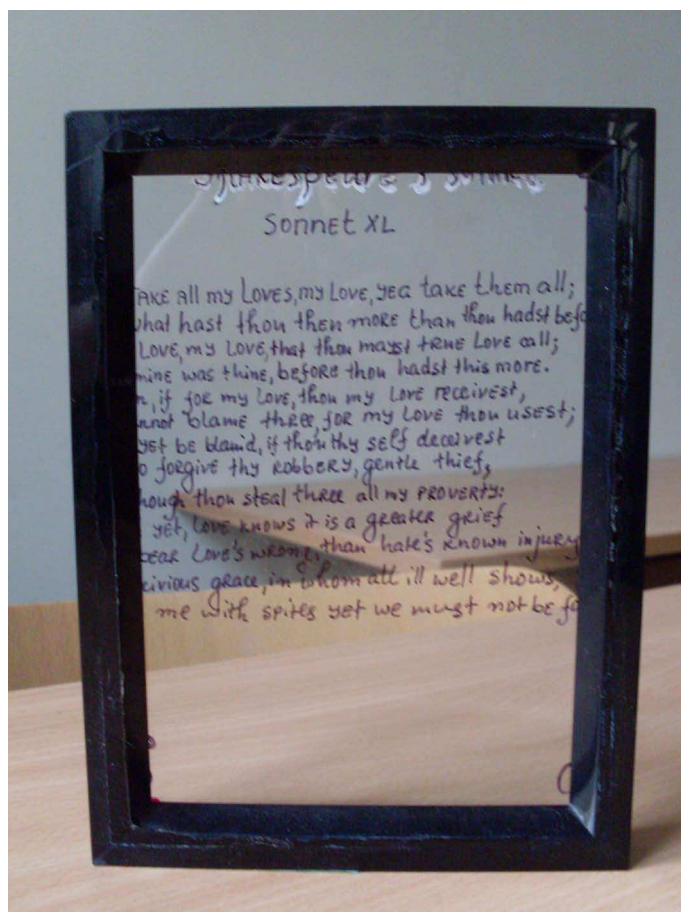 Shakespeare's Sonnet
Sonnet XL
TAKE All my Loves, my Love, yea take them all;
what hast thou then more than thou hadst befo
Love, my Love, that thou mayst TRUE Love call;
mine was thine, before thou hadst this more.
n, if for my Love, thou my Love receivest,
nnot blame three, for my Love thou usest;
yet be blam'd, if thou thy self deceivest
o forgive thy Robbery, gentle thief,
hough thou steal three all my PROVERTY:
yet, Love knows it is a greater grief
bear Love's wrong, than hate's known injury
civious grace, in whom all ill well shows,
me with spites yet we must not be fo